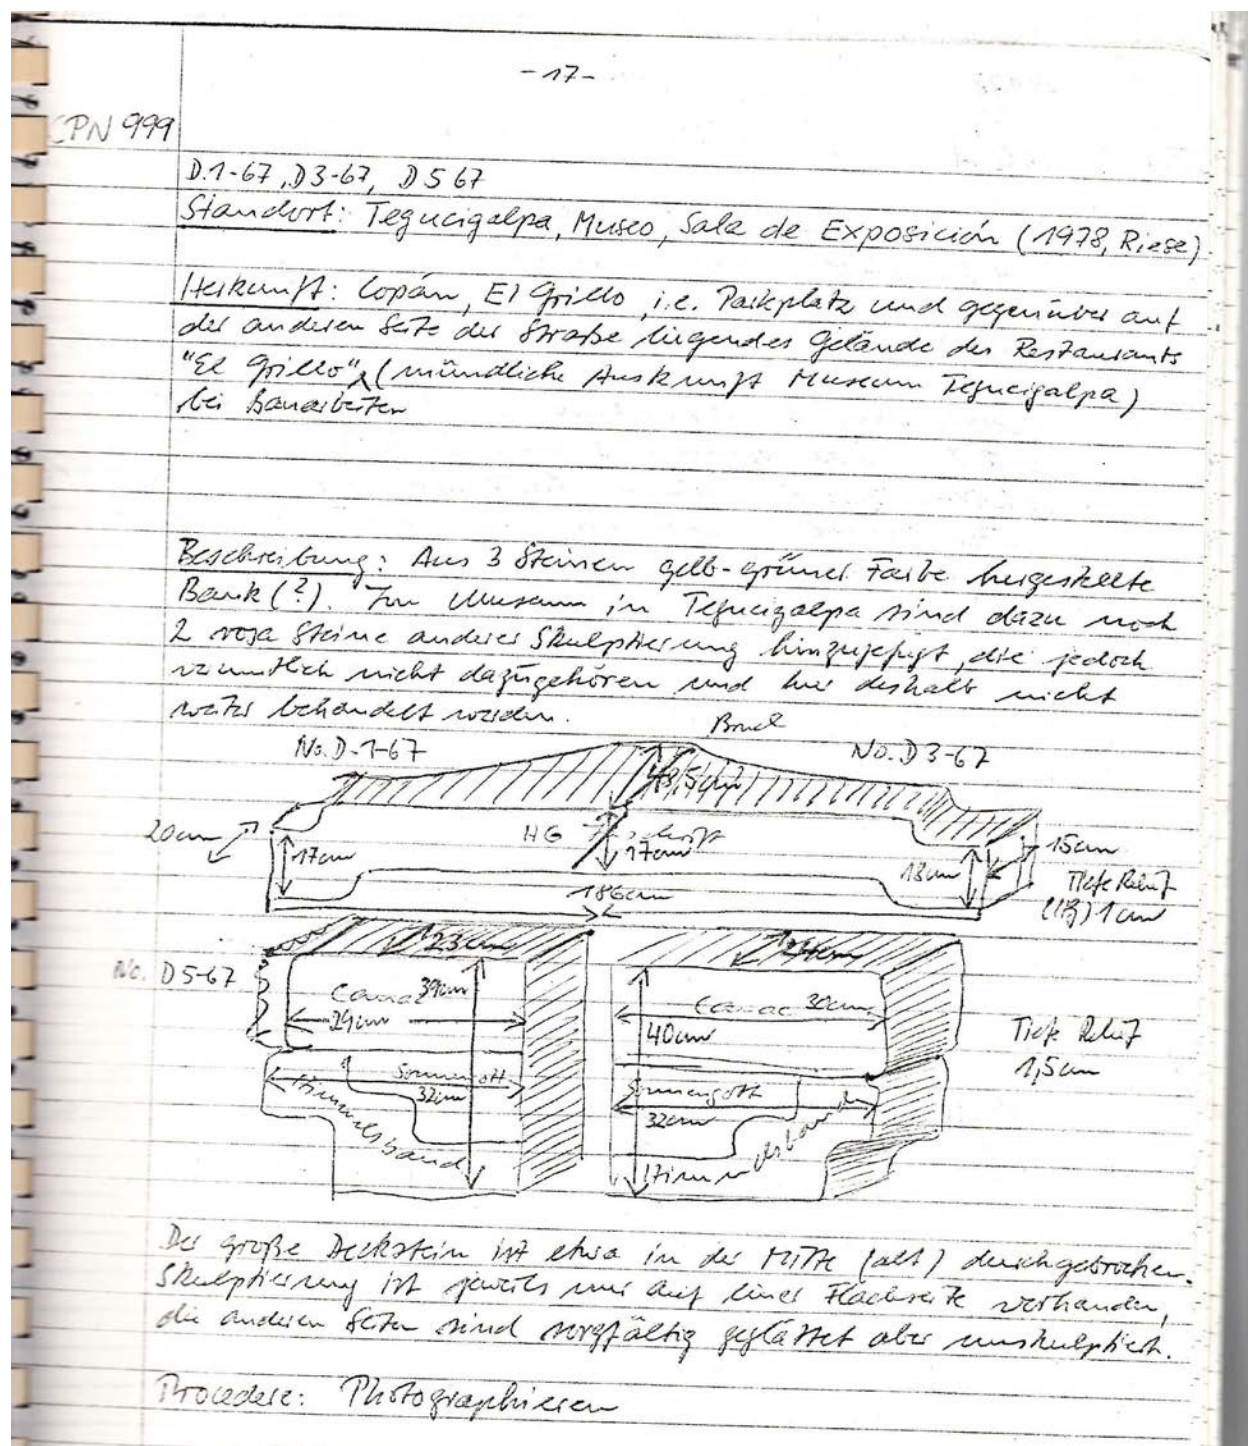 -17-
CPN 999
D.1-67, D3-67, D 5 67
Standort: Tegucigalpa, Museo, Sala de Exposición (1978, Riese)
Herkunft: Copán, El Grillo, i.e. Parkplatz und gegenüber auf
der anderen Seite der Straße liegendes Gelände des Restaurants
"El Grillo", (mündliche Auskunft Museum Tegucigalpa)
bei Bauarbeiten
Beschreibung: Aus 3 Steinen gelb-grüner Farbe hergestellte
Bank (?). Im Museum in Tegucigalpa sind dazu noch
2 rosa Steine anderer Skulptierung hinzugefügt, die jedoch
vermutlich nicht dazugehören und hier deshalb nicht
weiter behandelt werden.
Bruch
No. D-1-67
No. D 3-67
20cm
HG
17cm
17cm
18cm
15cm
186cm
Tiefe Relief
1cm
23cm
No. D5-67
Cauac 39cm
29cm
Cauac 30cm
40cm
Tiefe Relief
1,5cm
Sonnengott
32cm
Himmelsband
Sonnengott
32cm
Himmelsband
Der große Deckstein ist etwa in der Mitte (alt) durchgebrochen.
Skulptierung ist jeweils nur auf einer Flachseite vorhanden,
die anderen Seiten sind sorgfältig geglättet aber unskulptiert.
Procedere: Photographieren